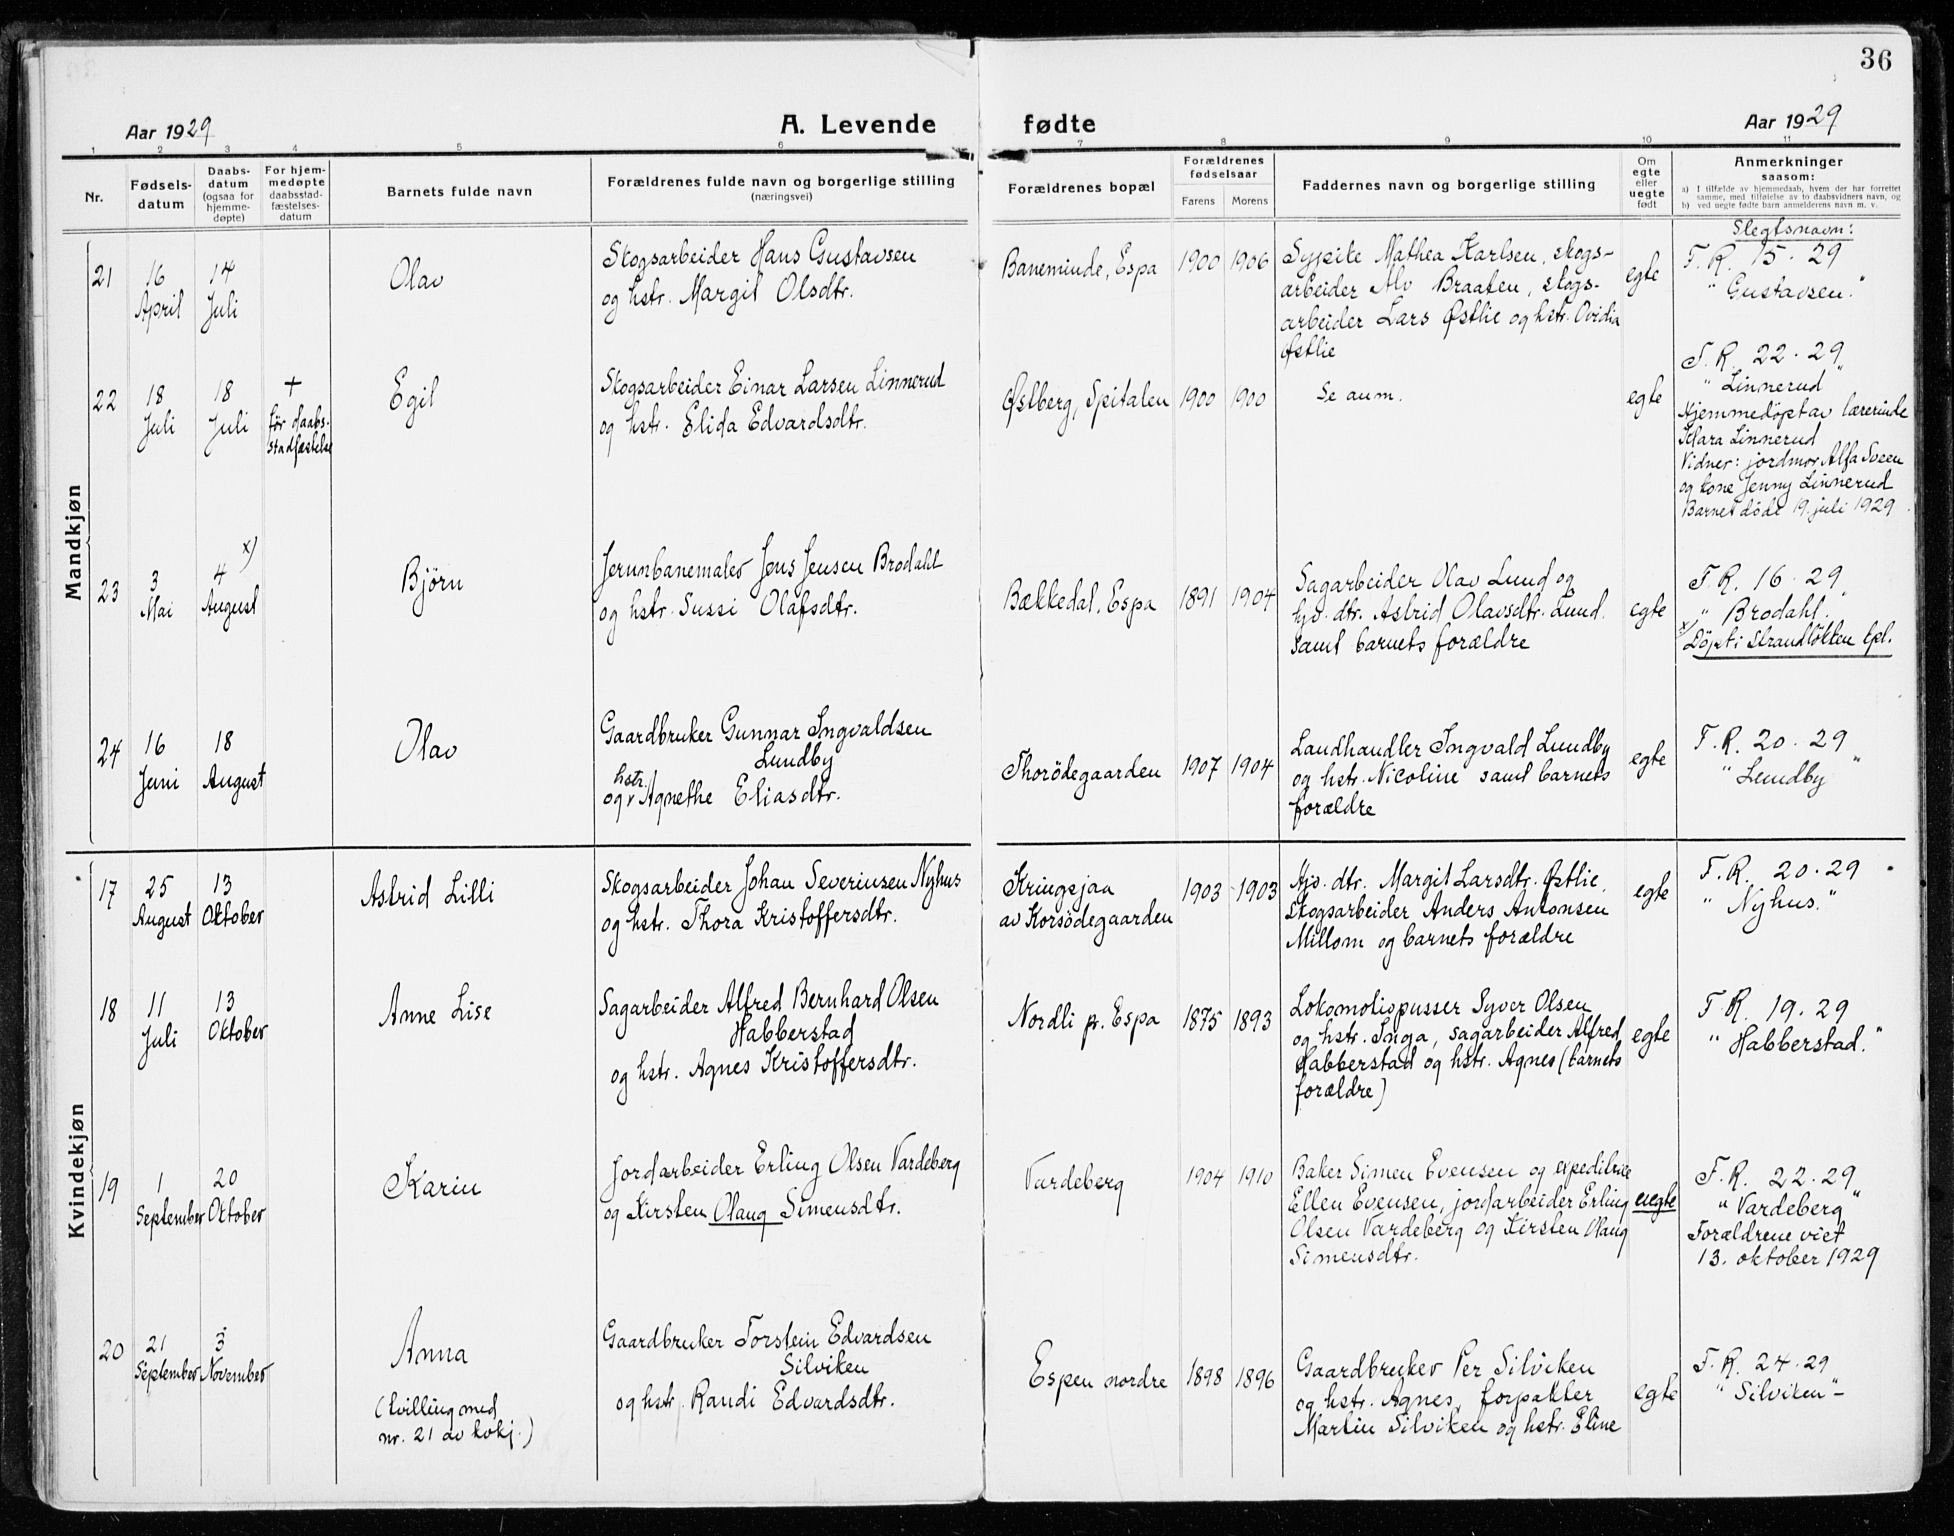 36
Aar 1929
A. Levende fødte
Aar 1929
1 2 3 4 5 6 7 8 9 10 11
Nr.
Fødsels-
datum
Daabs-
datum
(ogsaa for
hjemme-
døpte)
For hjem-
medøpte
daabsstad-
fæstelses-
datum
Barnets fulde navn
Forældrenes fulde navn og borgerlige stilling
(næringsvei)
Forældrenes bopæl
Forældrenes
fødselsaar
Farens Morens
Faddernes navn og borgerlige stilling
Om
egte
eller
uegte
født
Anmerkninger
saasom:
a) I tilfælde av hjemmedaab, hvem der har forrettet
samme, med tilføielse av to daabsvidners navn, og
b) ved uegte fødte barn anmelderens navn m. v.
Mandkjøn
21
16
April
14
Juli
Olav
Skogsarbeider Hans Gustavsen
og hstr. Margit Olsdtr.
Baneminde, Espa
1900 1906
Sypike Mathea Karlsen, skogs-
arbeider Alv Braaten, skogs-
arbeider Lars Østlie og hstr. Ovidia
Østlie
egte
Slegtsnavn:
F. R. 15. 29
" Gustavsen."
22
18
Juli
18
Juli
+
før daabs-
stadfæstelse
Egil
Skogsarbeider Einar Larsen Linnerud
og hstr. Elida Edvardsdtr.
Østberg, Spitalen
1900 1900
Se anm.
egte
F. R. 22. 29
" Linnerud "
Hjemmedöpt av lærerinde
Klara Linnerud
Vidner: jordmor Alfa Sveen
og kone Jenny Linnerud
Barnet döde 19. juli 1929.
23
3
Mai
4 x)
August
Björn
Jernbanemaler Jens Jensen Brodahl
og hstr. Sussi Olafsdtr.
Bækkedal, Espa
1891 1904
Sagarbeider Olav Lund og
hjv. dtr. Astrid Olavsdtr. Lund.
samt barnets forældre
egte
F. R. 16. 29
" Brodahl. "
x) Döpt i Strandlökken kpl.
24
16
Juni
18
August
Olav
Gaardbruker Gunnar Ingvaldsen
Lundby
og hstr. Agnethe Eliasdtr.
Thorödegaarden
1907 1904
Landhandler Ingvald Lundby
og hstr. Nicoline samt barnets
forældre
egte
F. R. 20. 29
" Lundby "
Kvindekjøn
17
25
August
13
Oktober
Astrid Lilli
Skogsarbeider Johan Severinsen Nyhus
og hstr. Thora Kristoffersdtr.
Kringsjaa
av Korsödegaarden
1903 1903
Hjv. dtr. Margit Larsdtr. Østlie,
skogsarbeider Anders Antonsen
Millom og barnets forældre
egte
F. R. 20. 29
" Nyhus."
18
11
Juli
13
Oktober
Anne Lise
Sagarbeider Alfred Bernhard Olsen
Habberstad
og hstr. Agnes Kristoffersdtr.
Nordli p. Espa
1875 1893
Lokomotivpusser Syver Olsen
og hstr. Inga, sagarbeider Alfred
Habberstad og hstr. Agnes (barnets
forældre)
egte
F. R. 19. 29
" Habberstad."
19
1
September
20
Oktober
Karin
Jordarbeider Erling Olsen Vardeberg
og Kirsten Olaug Simensdtr.
Vardeberg
1904 1910
Baker Simen Evensen og expeditrice
Ellen Evensen, jordarbeider Erling
Olsen Vardeberg og Kirsten Olaug
Simensdtr.
uegte
F. R. 22. 29
" Vardeberg "
Forældrene viet
13. oktober 1929
20
21
September
3
November
Anna
(tvilling med
nr. 21 av kvkj.)
Gaardbruker Torstein Edvardsen
Silviken
og hstr. Randi Edvardsdtr.
Espen nordre
1898 1896
Gaardbruker Per Silviken
og hstr. Agnes, forpakter
Martin Silviken og hstr. Eline
egte
F. R. 24. 29
" Silviken "